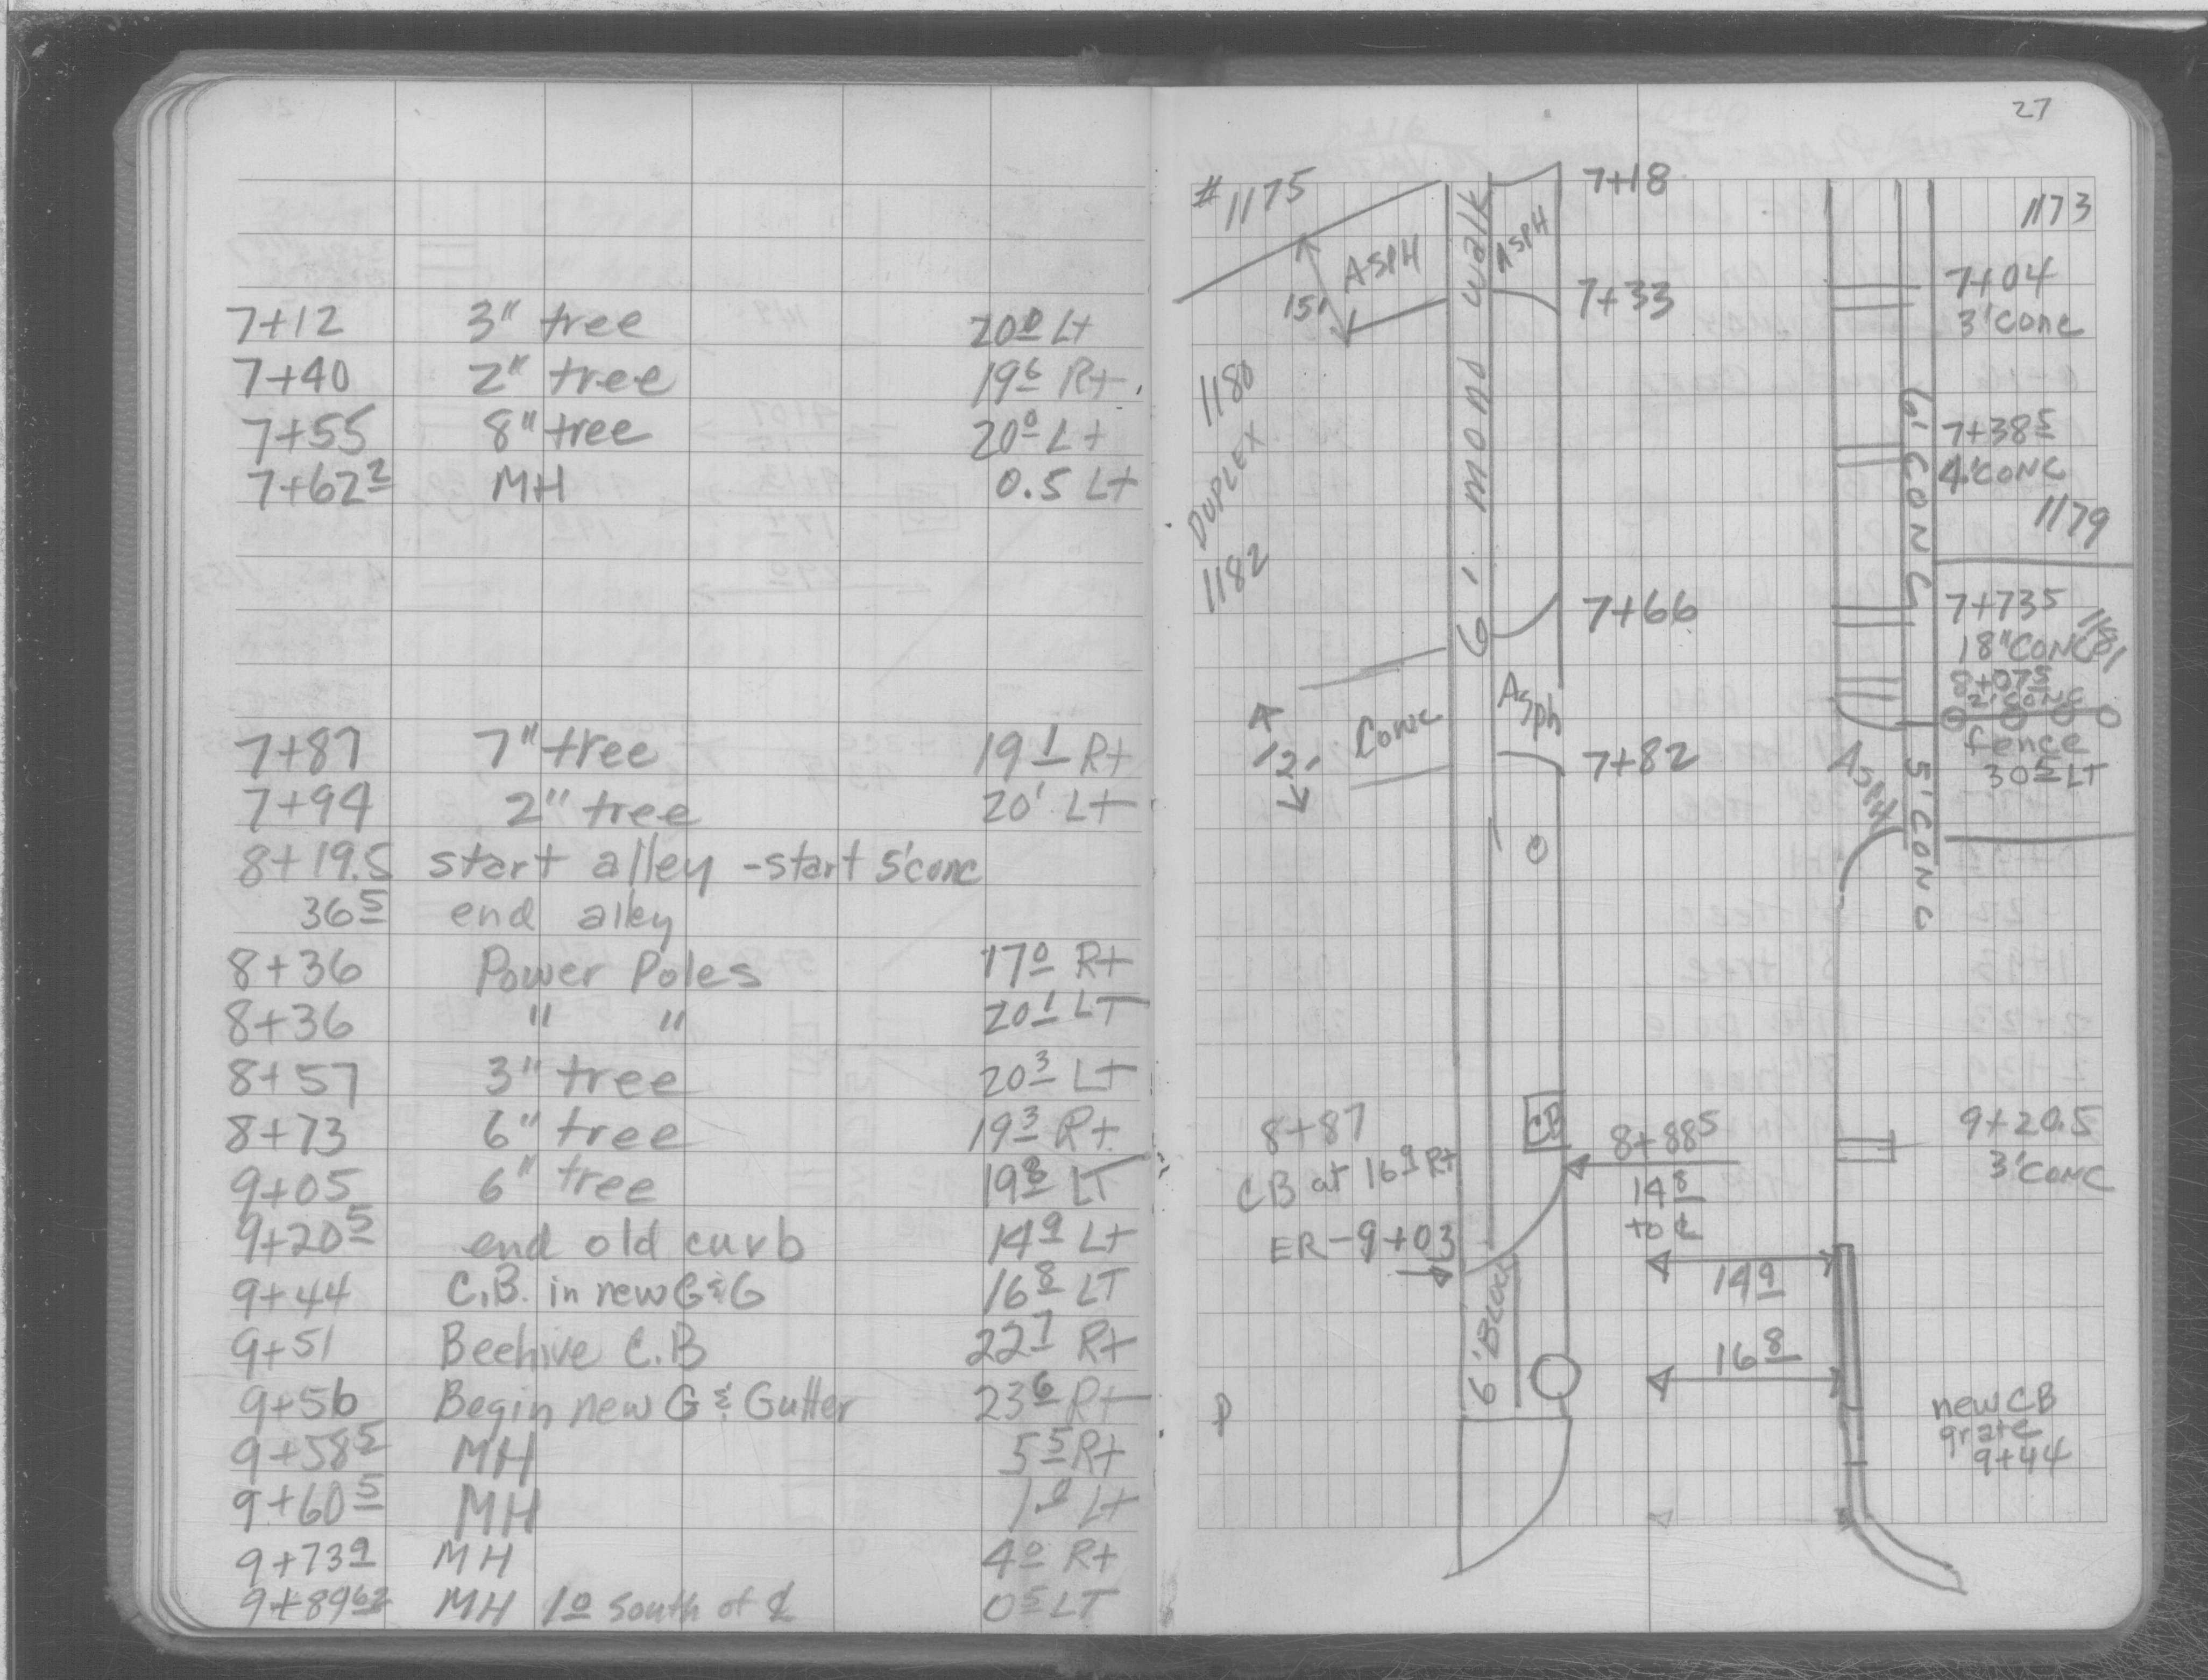 7+12 3" tree 20 0 Lt
7+40 2" tree 19 6 Rt
7+55 8" tree 20 0 Lt
7+62 2 MH 0.5 Lt
7+87 7" tree 19 1 Rt
7+94 2" tree 20' Lt
8+19.5 start alley - start 5'conc
36 5 end alley
8+36 Power Poles 17 0 Rt
8+36 " " 20 1 LT
8+57 3" tree 20 3 Lt
8+73 6" tree 19 3 Rt
9+05 6" tree 19 8 LT
9+20 5 end old curb 14 9 Lt
9+44 C.B. in new G&G 16 8 LT
9+51 Beehive C.B 22 7 Rt
9+56 Begin new G & Gutter 23 6 Rt
9+58 5 MH 5 5 Rt
9+60 5 MH Lt
9+73 9 MH 4 0 Rt
9+89 MH 1 0 South of ℄ 0 5 LT
27
#1175
ASPH
15'
6' mono walk
ASPH
7+18
7+33
1180
DUPLEX
1182
7+66
Asph
Conc
12'
7+82
1173
7+04
3'conc
6' CONC
7+38 5
4'CONC
1179
7+73 5
18"CONC
1181
8+07 5
2'CONC
fence
30 5 LT
Asph
5' CONC
8+87
CB at 16 9 Rt
ER-9+03
CB
8+88 5
14 8
to ℄
14 9
16 8
9+20.5
3'conc
6'
new CB
grate
9+44
P